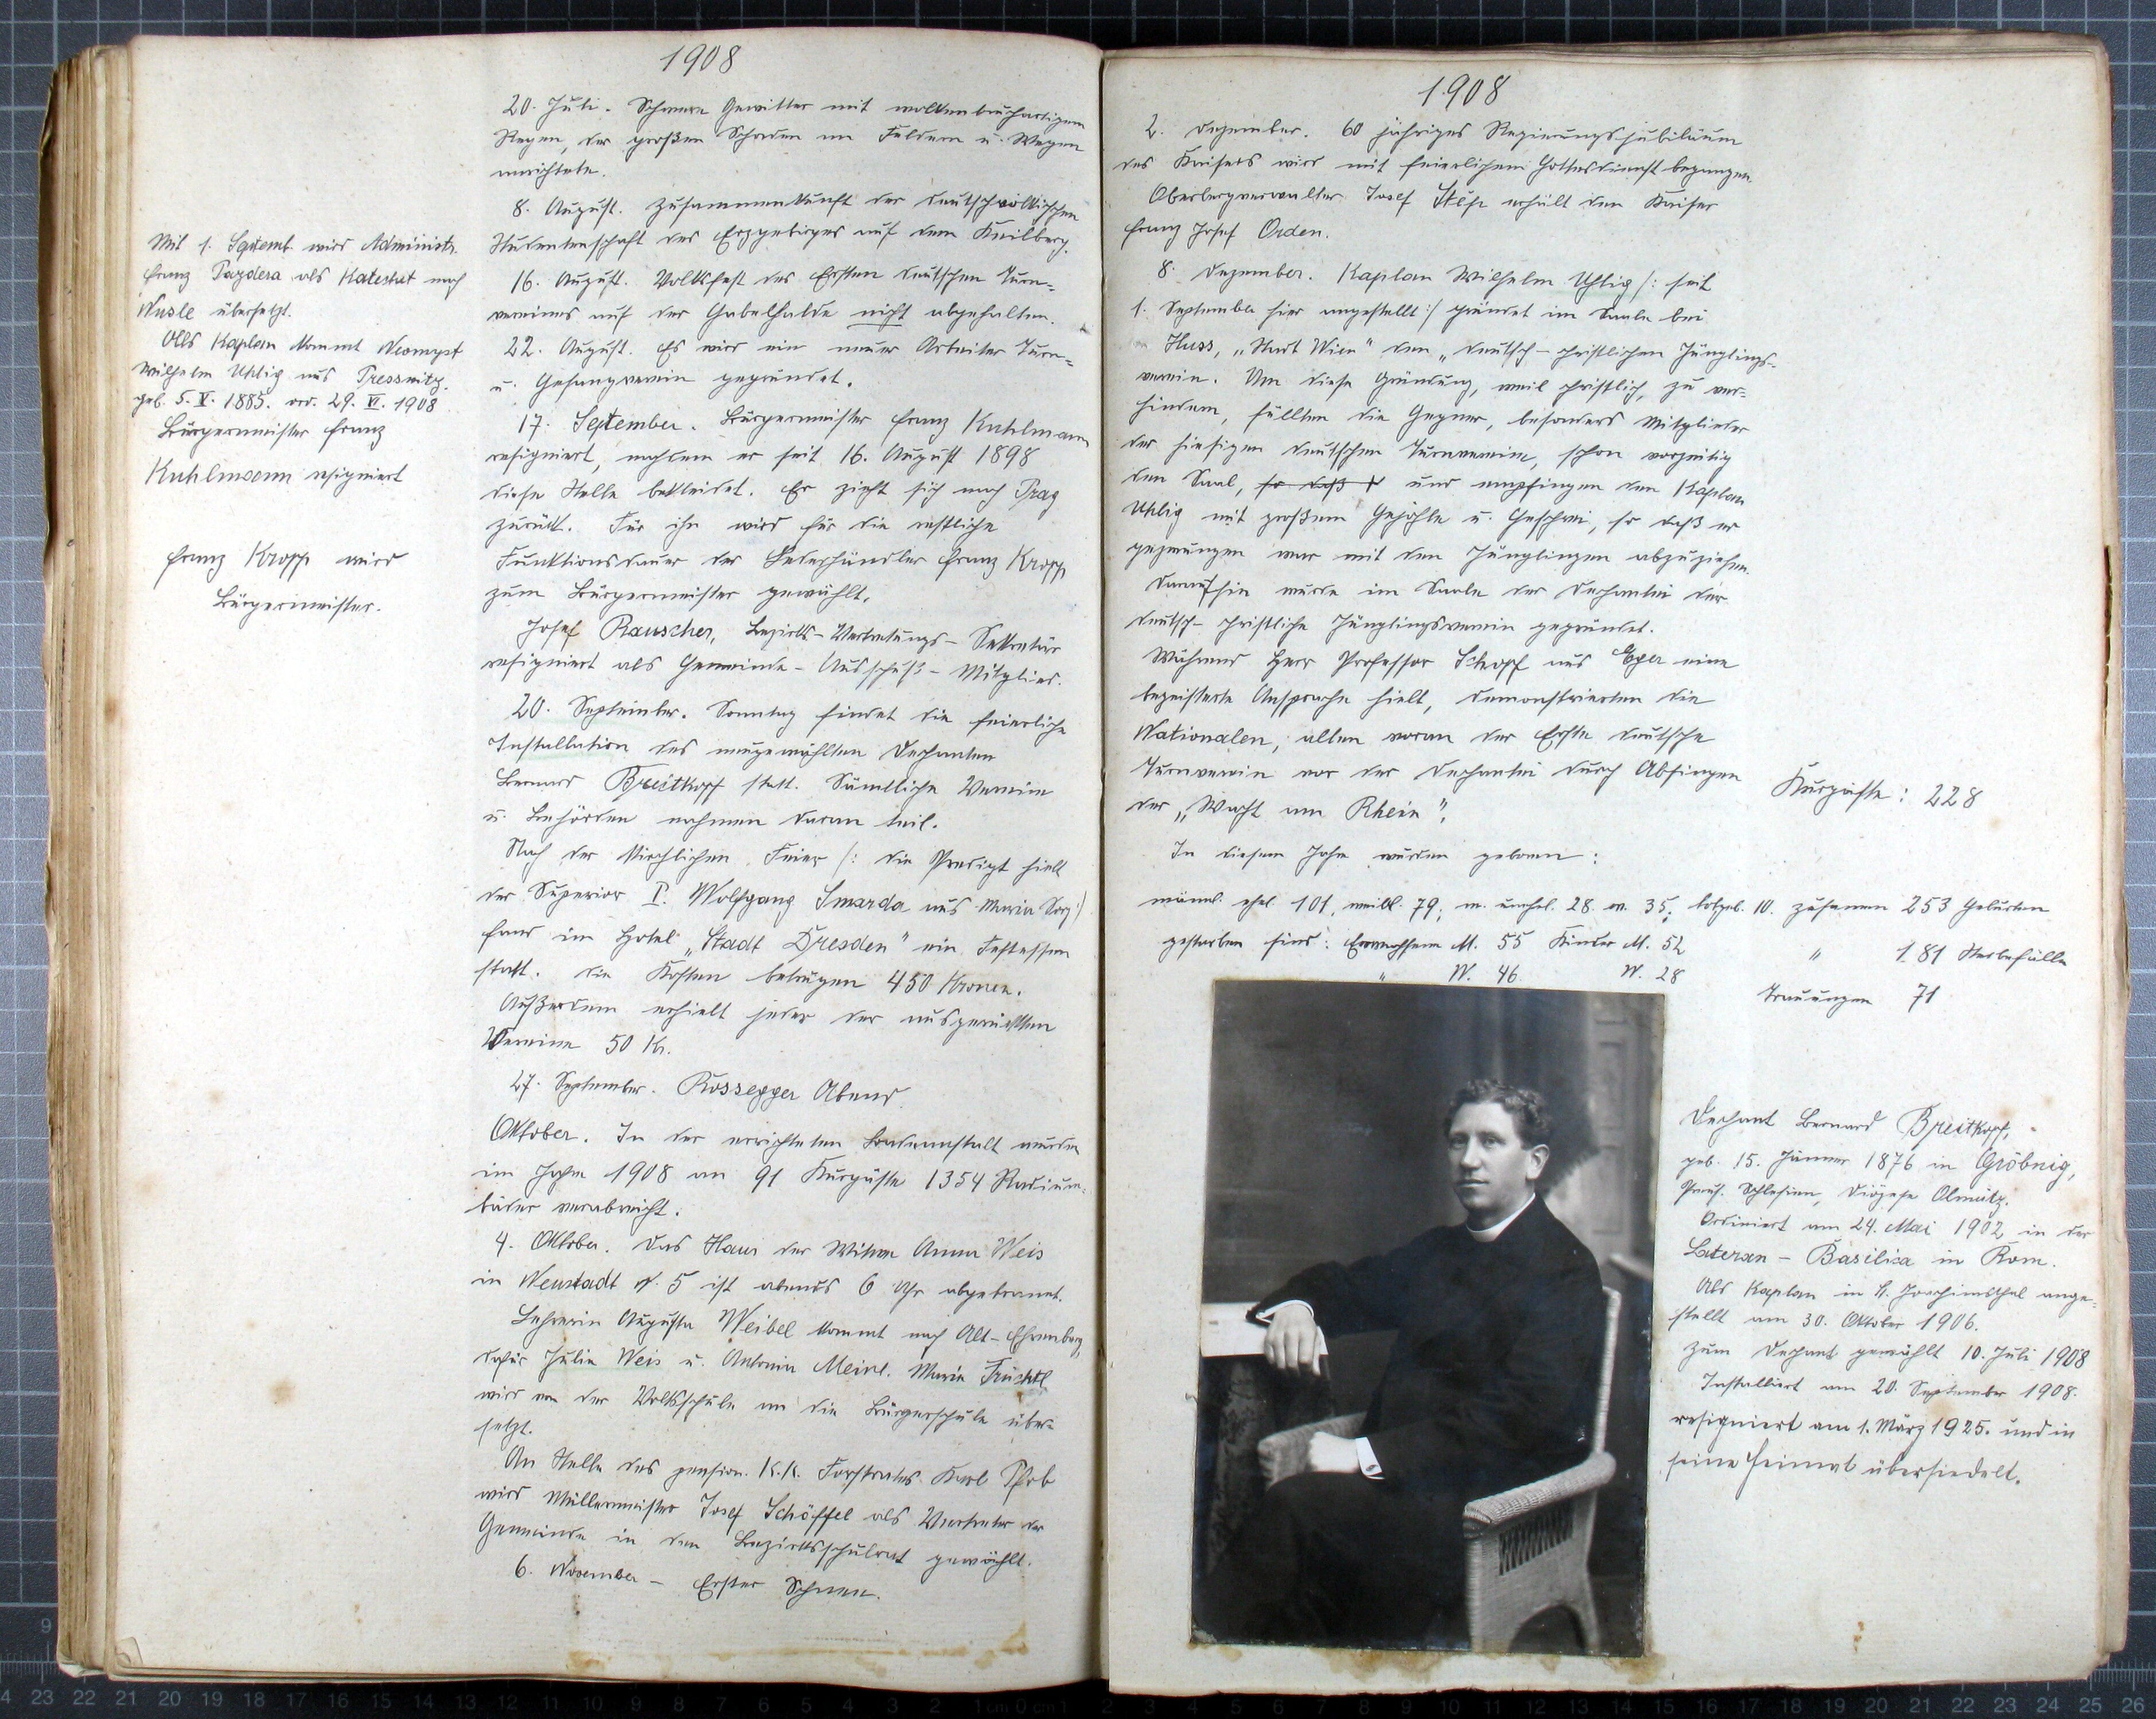 1908
20. Juli. Schwere Gewitter mit wolkenbruchartigem
Regen, der großen Schaden an Feldern u. Wegen
anrichtete.
8. August. Zusammenkunft der deutschvölkischen
Studentenschaft des Erzgebirges auf dem Keilberg.
16. August. Volksfest des Ersten deutschen Turn-
vereines auf der Gabelhalde nicht abgehalten.
22. August. Es wird ein neuer Arbeiter Turn-
u. Gesangverein gegründet.
17. September. Bürgermeister Franz Kuhlmann
resigniert, nachdem er seit 16. August 1898
diese Stelle bekleidet. Er zieht sich nach Prag
zurück. Für ihn wird für die restliche
Funktionsdauer der Lederhändler Franz Kropp
zum Bürgermeister gewählt.
Josef Rauscher, Bezirks-Vertretungs-Sekretär
resigniert als Gemeinde-Ausschuß-Mitglied.
20. September. Sonntag findet die feierliche
Installation des neugewählten Dechanten
Bernard Breitkopf statt. Sämtliche Vereine
u. Behörden nahmen daran teil.
Nach der kirchlichen Feier /: die Predigt hielt
der Superior P. Wolfgang Smarda aus Maria Sorg :/
fand im Hotel „Stadt Dresden" ein Festessen
statt. Die Kosten betrugen 450 Kronen.
Außerdem erhielt jeder der ausgerückten
Vereine 50 Kr.
27. September. Rossegger Abend.
Oktober. In der errichteten Badeanstalt wurden
im Jahre 1908 an 91 Kurgäste 1354 Radium-
bäder verabreicht.
4. Oktober. Das Haus der Witwe Anna Weis
in Neustadt N. 5 ist abends 6 Uhr abgebrannt.
Lehrerin Augusta Weibel kommt nach Alt-Ehrenberg,
dafür Julie Weis u. Antonia Meinl. Maria Früchtl
wird von der Volksschule an die Bürgerschule über-
setzt.
An Stelle des pension. K.K. Forstrates Karl Pfob
wird Müllermeister Josef Schöffel als Vertreter der
Gemeinde in den Bezirksschulrat gewählt.
6. November - Erster Schnee.
Mit 1. Septemb. wird Administr.
Franz Pazdera als Katechet nach
Nusle übersetzt.
Als Kaplan kommt Neomyst
Wilhelm Uhlig aus Pressnitz.
geb. 5. V. 1885. ord. 29. VI. 1908
Bürgermeister Franz
Kuhlmann resigniert
Franz Kropp wird
Bürgermeister.
1908
2. Dezember. 60 jähriges Regierungsjubiläum
des Kaisers wird mit feierlichem Gottesdienst begangen.
Oberbergverwalter Josef Stěp erhält den Kaiser
Franz Josef Orden.
8. Dezember. Kaplan Wilhelm Uhlig /: seit
1. September hier angestellt :/ gründet im Saale bei
Huss, „Stadt Wien" den „deutsch-christlichen Jünglings-
verein. Um diese Gründung, weil christlich, zu ver-
hindern, füllten die Gegner, besonders Mitglieder
der hiesigen deutschen Turnvereine, schon vorzeitig
den Saal, so daß und empfingen den Kaplan
Uhlig mit großem Gejohle u. Geschrei, so daß er
gezwungen war mit den Jünglingen abzuziehen.
Daraufhin wurde im Saale der Dechantei der
deutsch-christliche Jünglingsverein gegründet.
Während Herr Professor Schopf aus Eger eine
begeisterte Ansprache hielt, demonstrierten die
Nationalen, allen voran der Erste deutsche
Turnverein vor der Dechantei durch Absingen
der „Wacht am Rhein".
Kurgäste: 228
In diesem Jahre wurden geboren:
männl. ehel. 101, weibl. 79; m. unehel. 28. w. 35; totgeb. 10. zusammen 253 Geburten
gestorben sind: Erwachsene M. 55 Kinder M. 52 " 181 Sterbefälle
" W. 46. W. 28
Trauungen 71
Dechant Bernard Breitkopf,
geb. 15. Jänner 1876 in Gröbnig,
Preuß. Schlesien, Diözese Olmütz.
Ordiniert am 24. Mai 1902 in der
Lateran-Basilica in Rom.
Als Kaplan in St. Joachimsthal ange-
stellt am 30. Oktober 1906.
Zum Dechant gewählt 10. Juli 1908
Installiert am 20. September 1908.
resigniert am 1. März 1925. und in
seine Heimat übersiedelt.